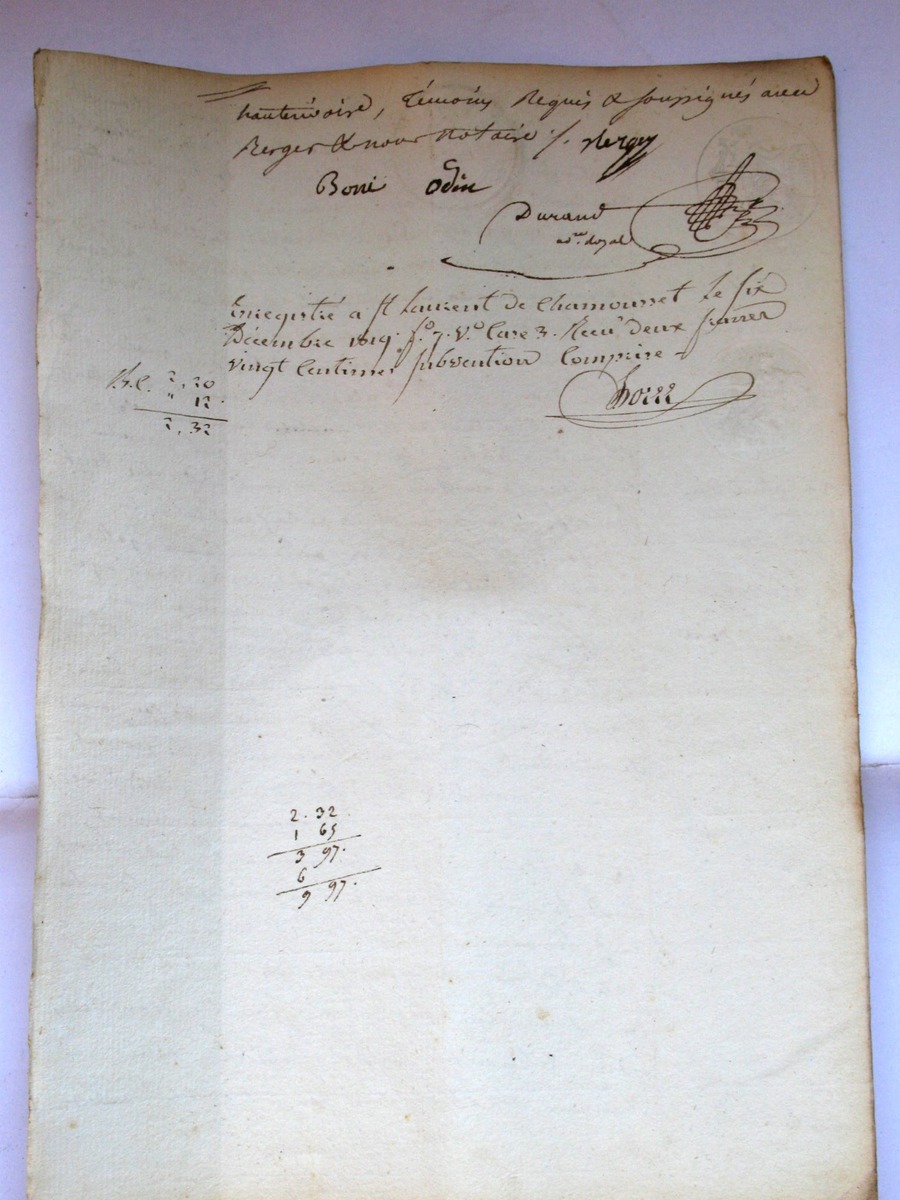 hauterivoire, témoins Requis & soussignés avec
Berger & nous notaire ./. Berger
Boni Odin
Durand
Enregistré a St Laurent de Chamousset le six
Décembre 1819. fo. 7. Vo. Case 3. Recu deux francs
vingt Centimes subvention Comprise
2, 20
" 12
2, 32
2. 32
1 65
3 97.
6
9 97.